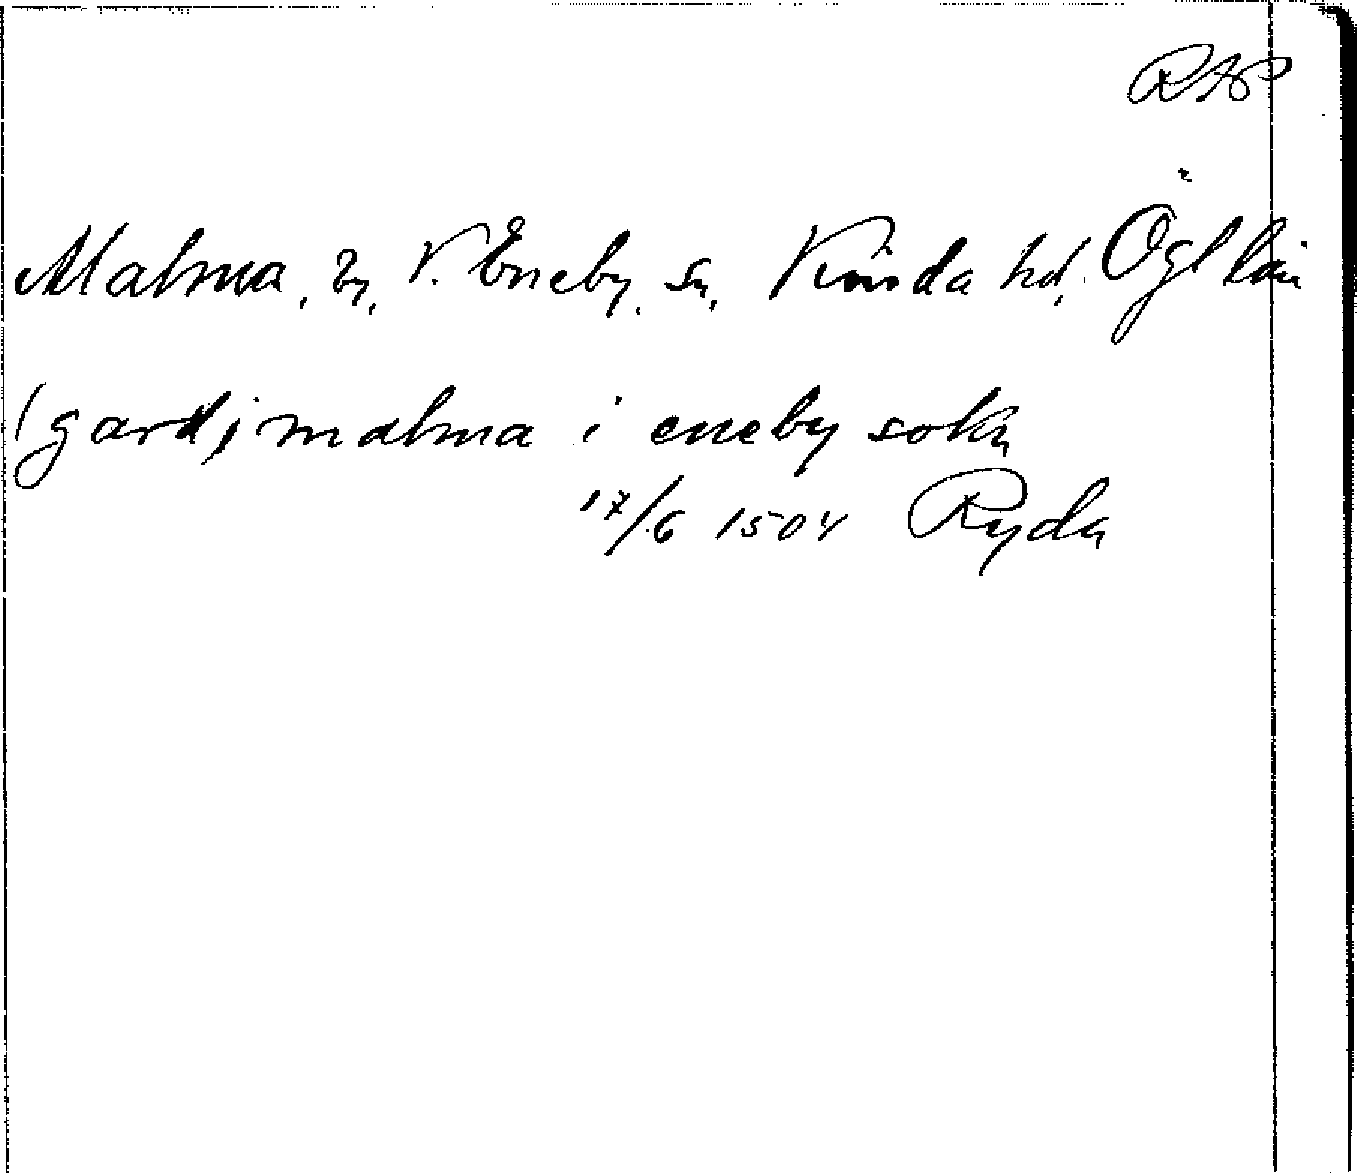 RAP
Malma, by, V. Eneby, sn, Kinda hd, Ögl län
(gard) i malma i eneby sokn
17/6 1504 Ryda